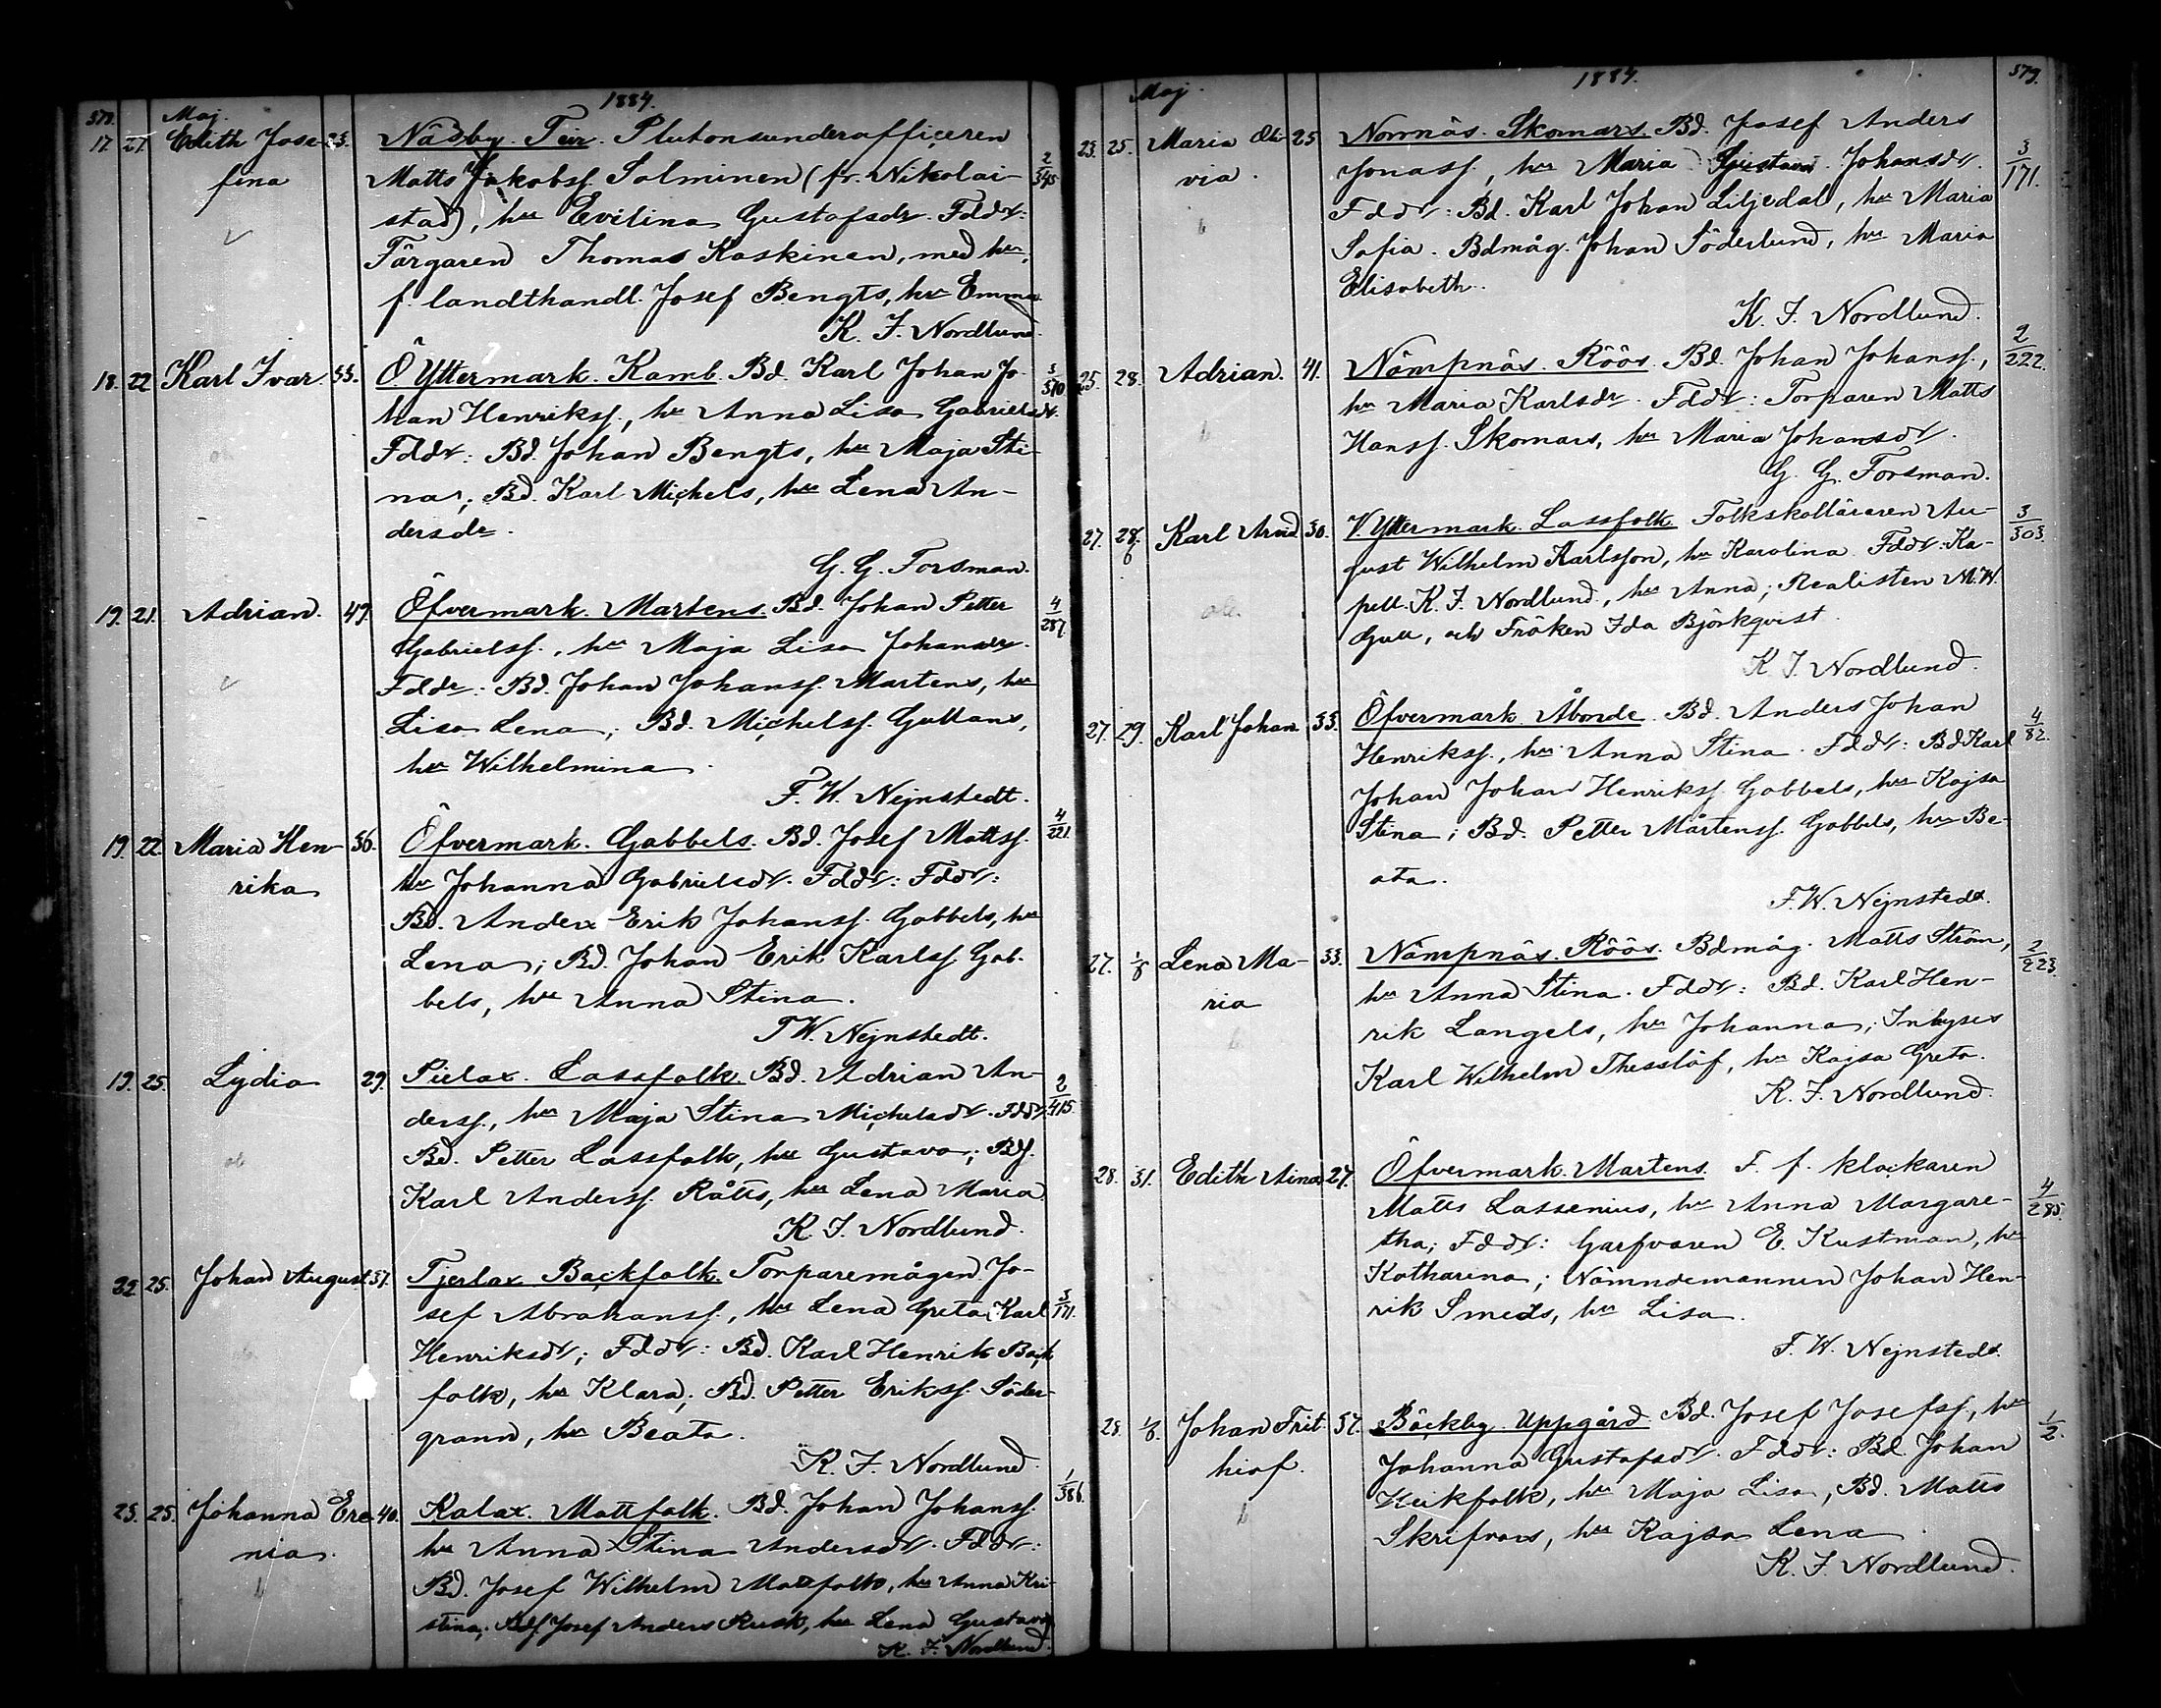 378.
Maj.
1884.
17. 27. Edith Jose- 23. Näsby. Teir. Plutonsunderofficeren
fina Matts Jakobss. Salminen (fr. Nikolai- 2/345
stad), hu Evilina Gustafsdr. Fddr:
Färgaren Thomas Kaskinen, med hu,
f. landthandl. Josef Bengts, hu Emma
K. J. Nordlund.
18. 22 Karl Ivar. 33. Ö. Yttermark. Kamb. Bd. Karl Johan Jo- 3/370
han Henrikss., hu Anna Lisa Gabrielsdr.
Fddr: Bd. Johan Bengts, hu Maja Sti-
na; Bd. Karl Michels, hu Lena An-
dersdr.
G. G. Forsman.
19. 21. Adrian. 49. Öfvermark. Martens. Bd. Johan Petter 4/287.
Gabrielss., hu Maja Lisa Johansdr.
Fddr: Bd. Johan Johanss. Martens, hu
Lisa Lena; Bd. Michelss. Gullans,
hu Wilhelmina.
F. W. Nejnstedt.
19. 22. Maria Hen- 36. Öfvermark. Gabbels. Bd. Josef Mattss. 4/221.
rika hu Johanna Gabrielsdr. Fddr: Fddr:
Bd. Anders Erik Johanss. Gabbels, hu
Lena; Bd. Johan Erik Karlss. Gab-
bels, hu Anna Stina.
F. W. Nejnstedt.
19. 25. Lydia 29. Pielax. Lassfolk. Bd. Adrian An- 2/415.
derss., hu Maja Stina Michelsdr. Fddr:
Bd. Petter Lassfolk, hu Gustava; Bds.
Karl Anderss. Råtts, hu Lena Maria
K. J. Nordlund.
22. 25. Johan August 37. Tjerlax Backfolk. Torparemågen Jo-
sef Abrahamss., hu Lena Greta Karl 3/171.
Henriksdr; Fddr: Bd. Karl Henrik Back
folk, hu Klara; Bd. Petter Erikss. Söder-
grann, hu Beata.
K. J. Nordlund.
23. 25. Johanna Ere- 40. Kalax. Mattfolk. Bd. Johan Johanss. 1/386.
nia. hu Anna Stina Andersdr. Fddr:
Bd. Josef Wilhelm Mattfolk, hu Anna Kri-
stina; Bds. Josef Anders Rusk, hu Lena Gustava
K. J. Nordlund.
Maj.
1884.
379.
23. 25. Maria Oli- 25 Norrnäs. Skomars. Bd. Josef Anders
via. Jonass., hu Maria Gustava Johansdr. 3/171.
Fddr: Bd. Karl Johan Liljedal, hu Maria
Sofia. Bdmåg. Johan Söderlund, hu Maria
Elisabeth.
K. J. Nordlund.
25. 28. Adrian. 41. Nämpnäs. Röös. Bd. Johan Johanss., 2/222.
hu Maria Karlsdr. Fddr: Torparen Matts
Hanss. Skomars, hu Maria Johansdr.
G. G. Forsman.
27. 28. Karl Arvid 30. V. Yttermark. Lassfolk. Folkskolläraren Au- 3/303.
gust Wilhelm Karlsson, hu Karolina. Fddr: Ka-
pell. K. J. Nordlund, hu Anna; Realisten M. W.
Gull, och Fröken Ida Björkqvist.
K. J. Nordlund.
27. 29. Karl Johan 33. Öfvermark. Åbonde. Bd. Anders Johan 4/82.
Henrikss., hu Anna Stina. Fddr: Bd Karl
Johan Johan Henrikss. Gabbels, hu Kajsa
Stina; Bd. Petter Mårtenss. Gabbels, hu Be-
ata.
F. W. Nejnstedt.
27. 1/6 Lena Ma- 33. Nämpnäs. Röös. Bdmåg. Matts Ström, 2/223.
ria hu Anna Stina. Fddr: Bd. Karl Hen-
rik Langels, hu Johanna; Inhyses
Karl Wilhelm Thesslöf, hu Kajsa Greta.
K. J. Nordlund.
28. 31. Edith Aina 27. Öfvermark. Martens. F. f. klockaren
Matts Lassenius, hu Anna Margare- 4/285.
tha; Fddr: Garfvaren E. Kustman, hu
Katharina; Nämndemannen Johan Hen-
rik Smeds, hu Lisa.
F. W. Nejnstedt.
28. 1/6. Johan Frit- 37. Böckby. Uppgård. Bd. Josef Josefss., hu 1/2.
hiof. Johanna Gustafsdr. Fddr: Bd. Johan
Heikfolk, hu Maja Lisa, Bd. Matts
Skrifvars, hu Kajsa Lena.
K. J. Nordlund.